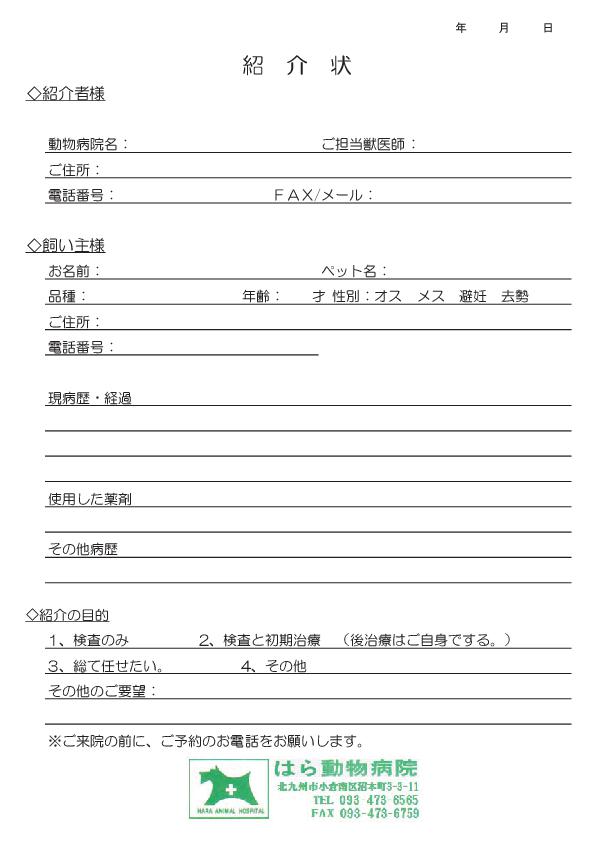 年 月 日
紹 介 状
◇紹介者様
動物病院名： ご担当獣医師：
ご住所：
電話番号： ＦＡＸ/メール：
◇飼い主様
お名前： ペット名：
品種： 年齢： 才 性別：オス メス 避妊 去勢
ご住所：
電話番号：
現病歴・経過
使用した薬剤
その他病歴
◇紹介の目的
１、検査のみ ２、検査と初期治療 （後治療はご自身でする。）
３、総て任せたい。 ４、その他
その他のご要望：
※ご来院の前に、ご予約のお電話をお願いします。
はら動物病院
北九州市小倉南区沼本町3-3-11
TEL 093-473-6565
FAX 093-473-6759
HARA ANIMAL HOSPITAL